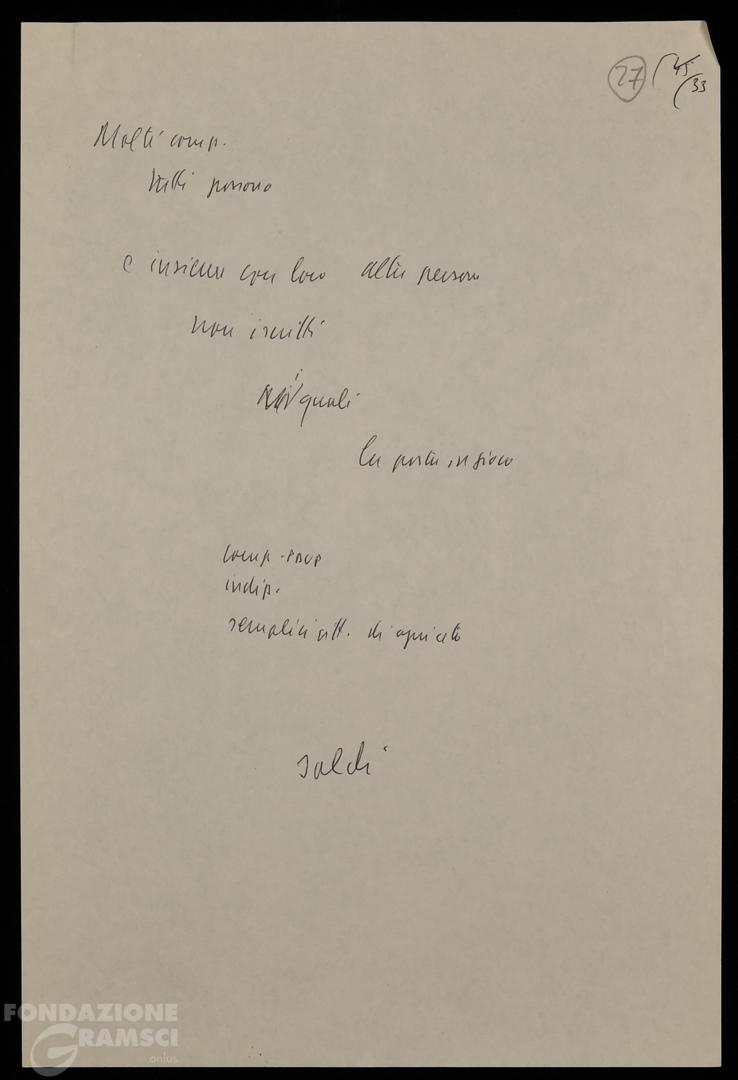 27 45/33
Molti comp.
tutti possono
e insieme con loro altre persone
non iscritti
i quali
la posta in gioco
comp. PDUP
indip.
semplici citt. di ogni ceto
soldi
FONDAZIONE
GRAMSCI
onlus